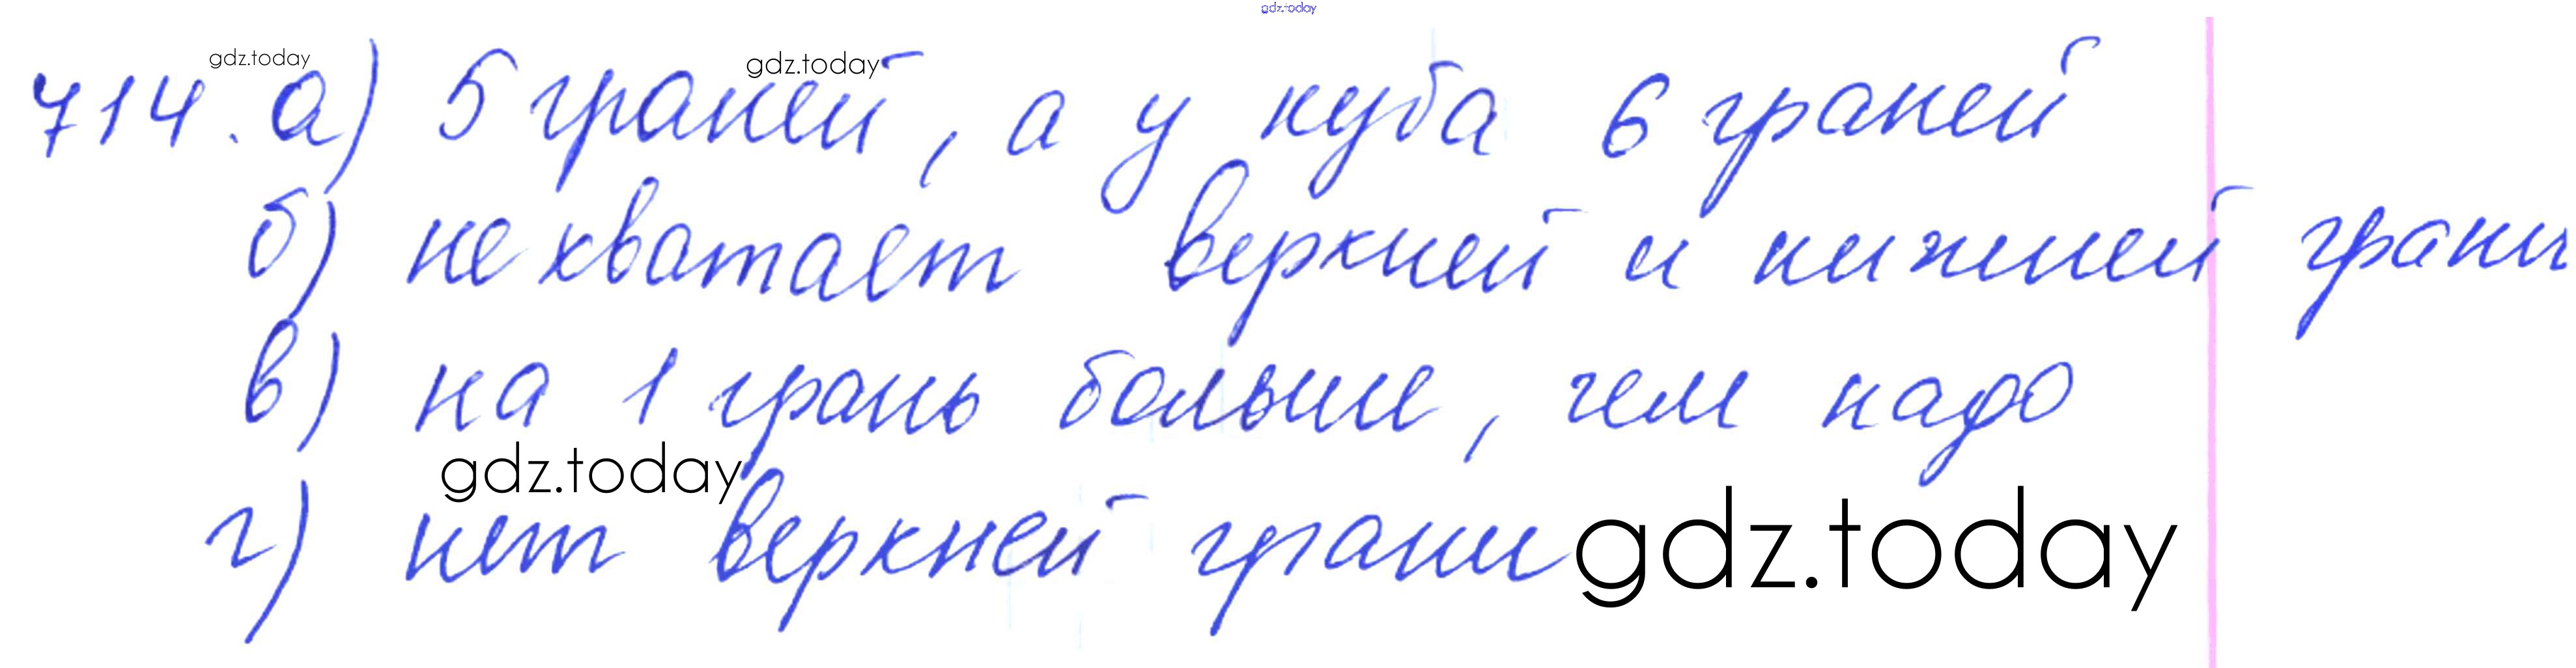 gdz.today
gdz.today
gdz.today
714. а) 5 граней, а у куба 6 граней
б) не хватает верхней и нижней грани
в) на 1 грань больше, чем надо
gdz.today
г) нет верхней грани
gdz.today